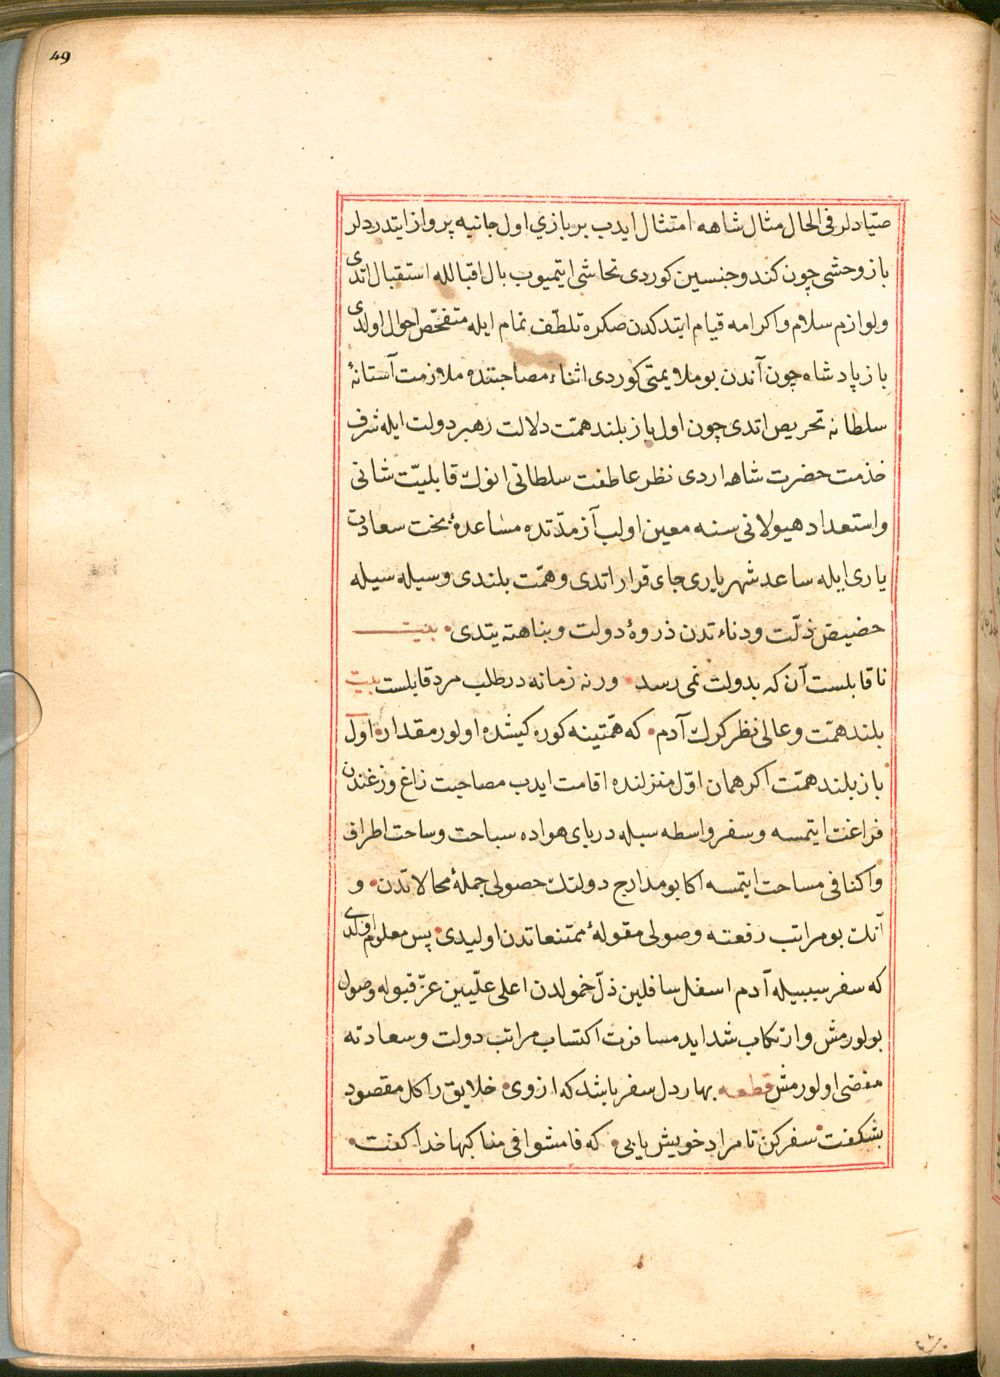 49
صیّادلر فی الحال مثال شاهه امتثال ایدب بر بازی اول جانبه پرواز ایتدردلر
باز وحشی چون کندو جنسین کوردی تحاشی ایتمیوب بال اقبالله استقبال اتدی
ولوازم سلام واکرامه قیام ایتدکدن صکره تلطّف تمام ایله متفحّص احوال اولدی
باز پادشاه چون آندن بو ملایمتی کوردی اثناء مصاحبتنده ملازمت آستانهٔ
سلطانه تحریص اتدی چون اول باز بلند همّت دلالت رهبر دولت ایله شرف
خذمت حضرت شاهه اردی نظر عاطفت سلطانی انوڭ قابلیّت شانی
واستعداد هیولانی سنه معین اولب آز مدّتده مساعدهٔ بخت سعادت
یاری ایله ساعد شهریاری جای قرار اتدی وهمّت بلندی وسیله سیله
حضیض ذلّت ودناءتدن ذروهٔ دولت وبناهته یتدی بیت
ناقابلست آن که بدولت نمی رسد ورنه زمانه در طلب مرد قابلست بیت
بلند همّت وعالی نظر کرك آدم که همّتینه کوره کیشده اولور مقدار اول
باز بلند همّت اکر همان اوّل منزلنده اقامت ایدب مصاحبت زاغ وزغندن
فراغت ایتمسه وسفر واسطه سیله دریای هواده سباحت وساحت اطراف
واکنافی مساحت ایتمسه اکا بو مدارج دولتڭ حصولی جملهٔ محالاتدن و
آنڭ بو مراتب رفعته وصولی مقولهٔ ممتنعاتدن اولیدی پس معلوم اولدی
که سفر سببیله آدم اسفل سافلین ذلّ خمولدن اعلی علّیین عزّ قبوله وصول
بولورمش وارتکاب شداید مسافرت اکتساب مراتب دولت وسعادته
مفضی اولورمش قطعه بهار دل سفر باشد که از وی خلایق را کل مقصود
بشکفت سفر کن تا مراد خویش یابی که فامشوا فی مناکبها خدا کفت